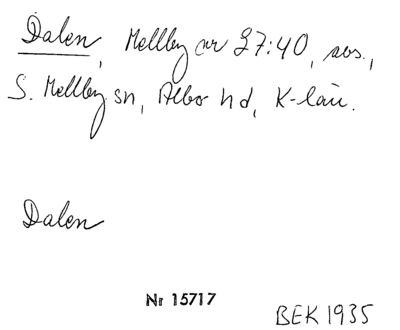 Dalen, Mellby ar 27:40, sos.,
S. Mellby sn, Albo hd, K-län.
Dalen
Nr 15717
BEK 1935